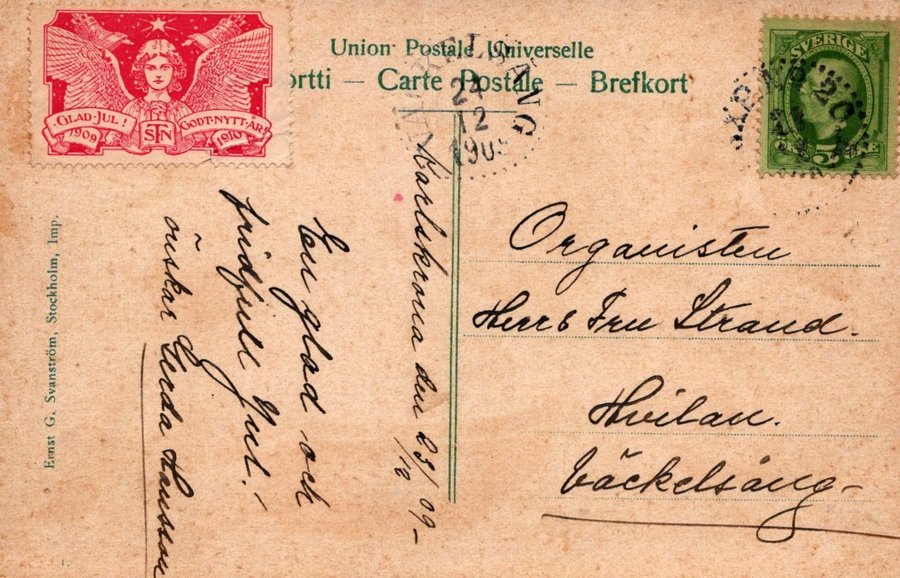 GLAD JUL!
1909
STN
GODT NYTT ÅR!
1910
Union Postale Universelle
ortti — Carte Postale — Brefkort
24
12
190
SVERIGE
5
Karlskrona den 23/12 09–
En glad och
fridfull Jul!
önskar Gerda Hansson
Organisten
Herr & Fru Strand.
Hvilan.
Väckelsång–
Ernst G. Svanström, Stockholm, Imp.